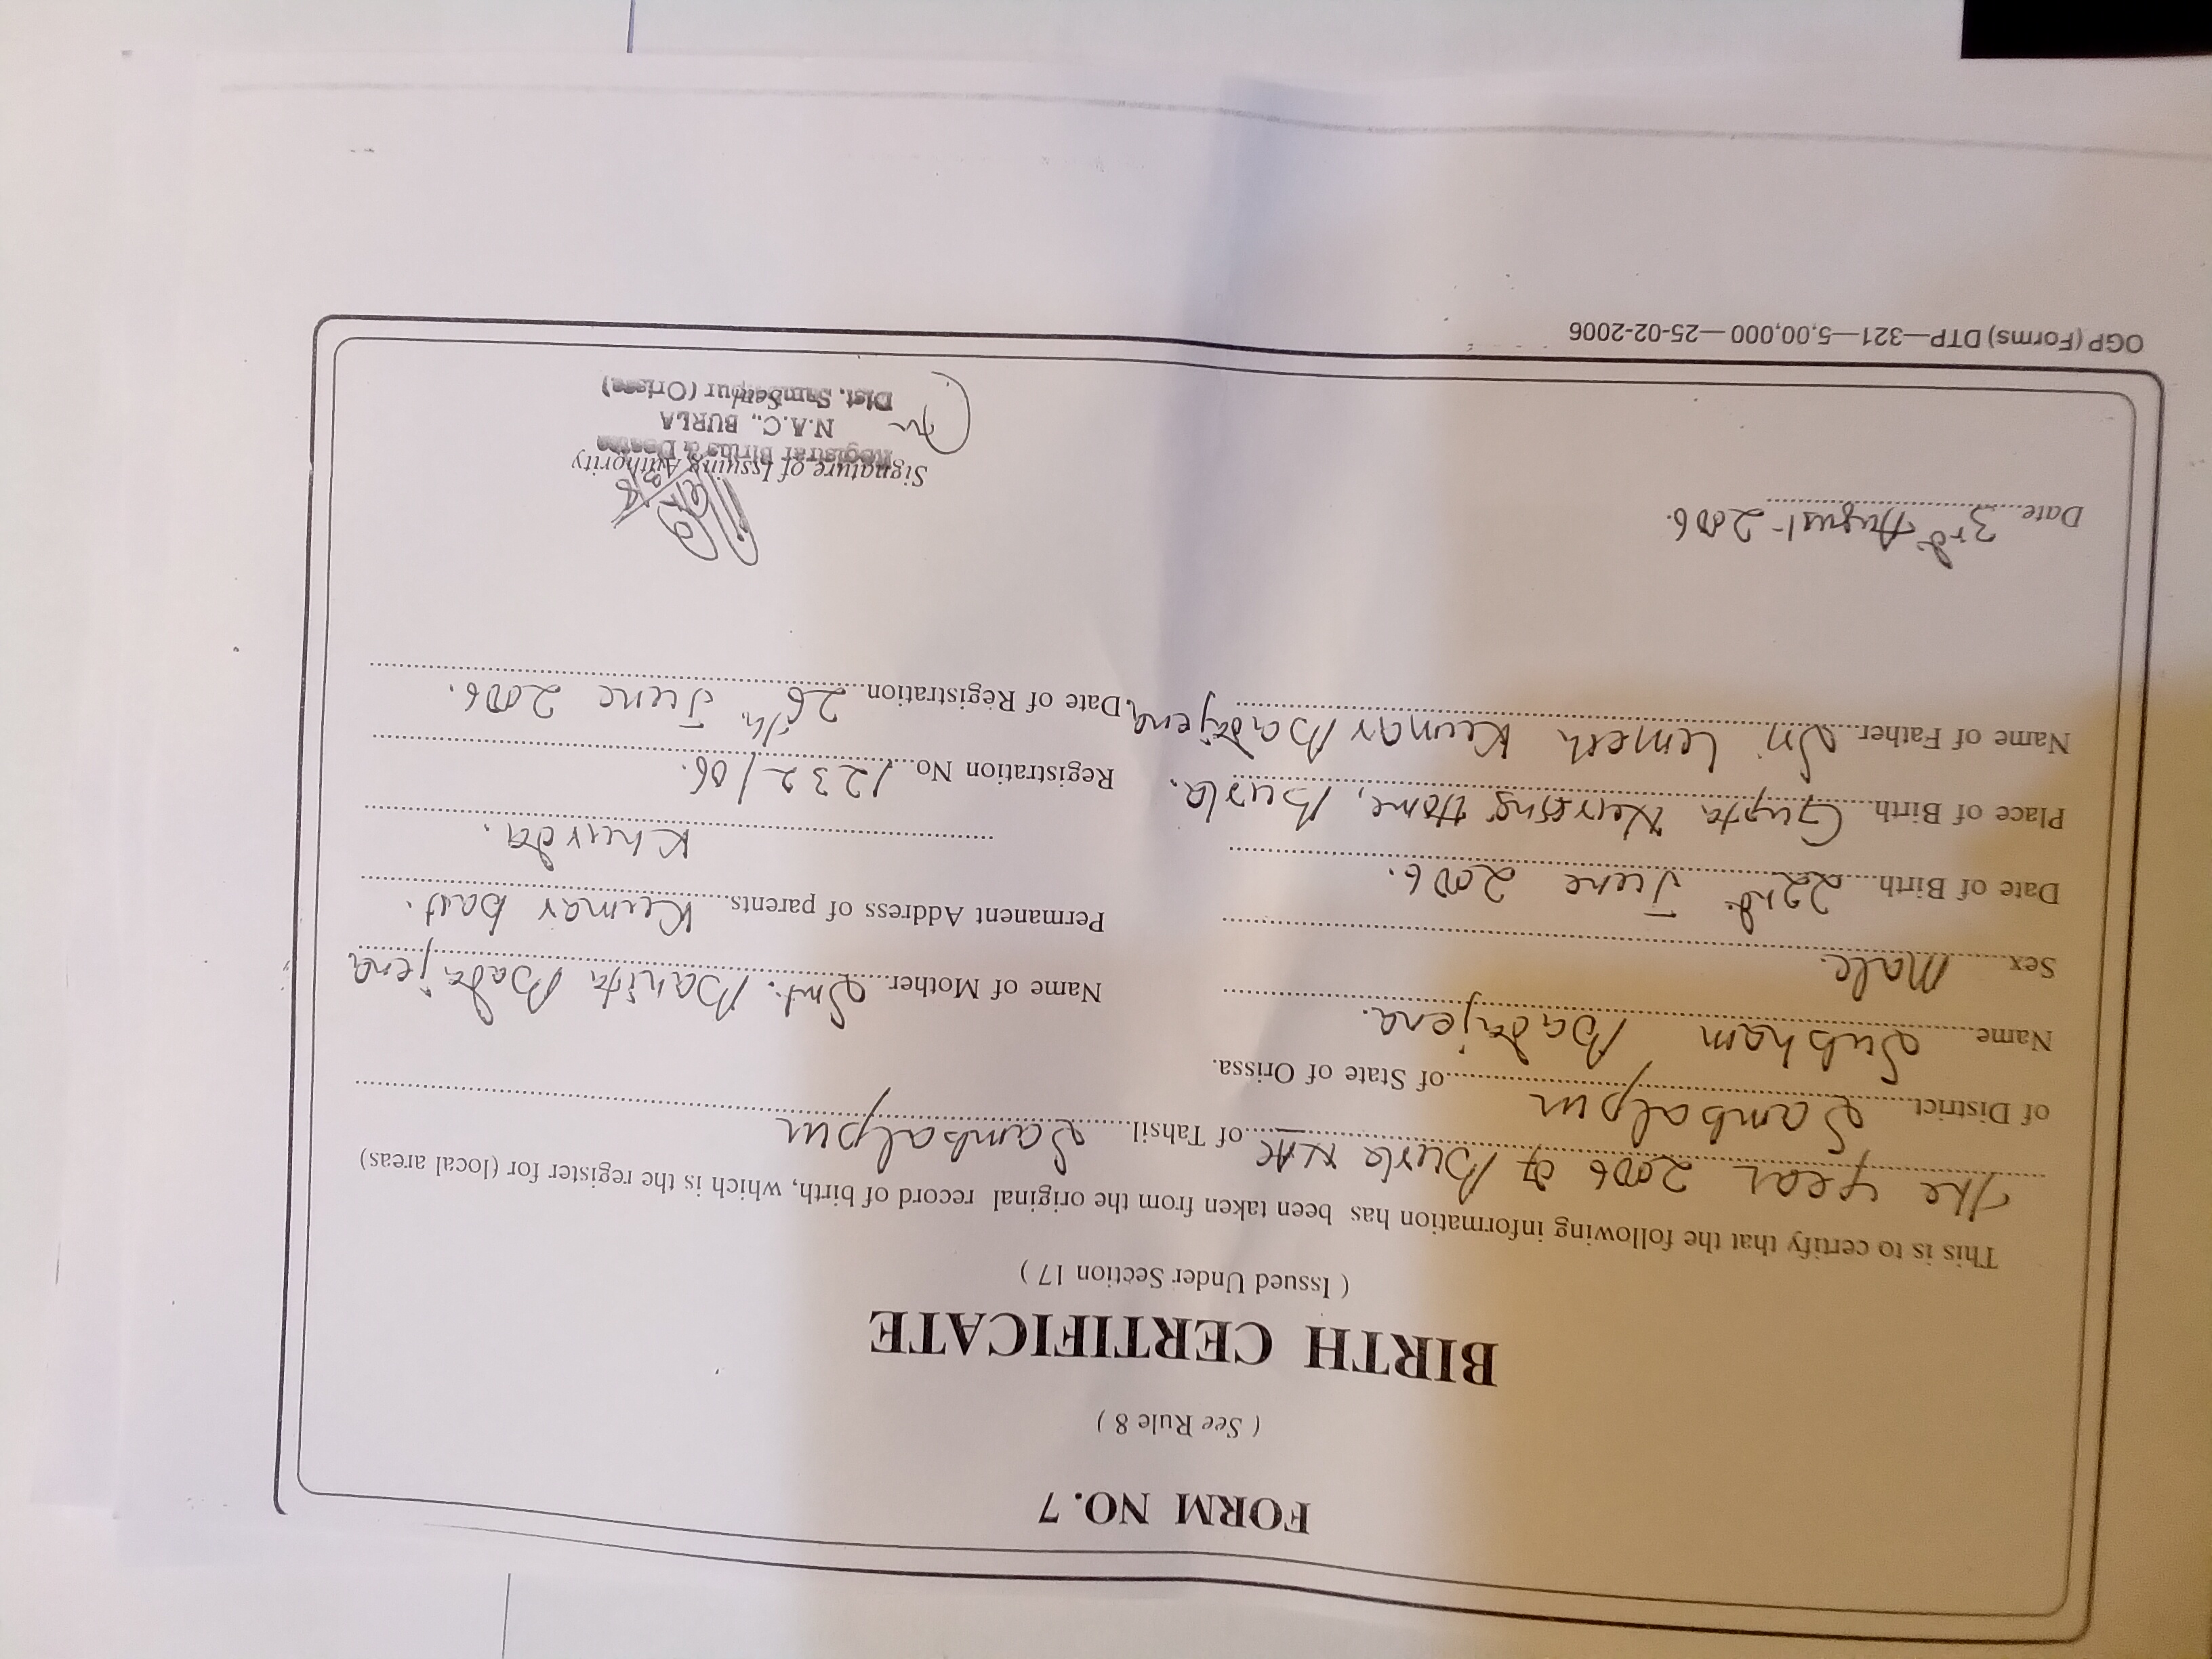 FORM NO. 7
( See Rule 8 )
BIRTH CERTIFICATE
( Issued Under Section 17 )
This is to certify that the following information has been taken from the original record of birth, which is the register for (local areas)
The year 2006 of Burla NAC of Tahsil Sambalpur
of District Sambalpur of State of Orissa.
Name Subham Badajena.
Sex Male.
Date of Birth 22nd June 2006.
Place of Birth Gupta Nursing Home, Burla.
Name of Father Sri Umesh Kumar Badajena
Name of Mother Smt. Banita Badajena
Permanent Address of parents Kumar bast.
Khurda.
Registration No 1232/06.
Date of Registration 26th. June 2006.
Date 3rd August 2006.
Signature of Issuing Authority
Registrar Births & Deaths
N.A.C., BURLA
Dist. Sambalpur (Orissa)
OGP (Forms) DTP—321—5,00,000—25-02-2006